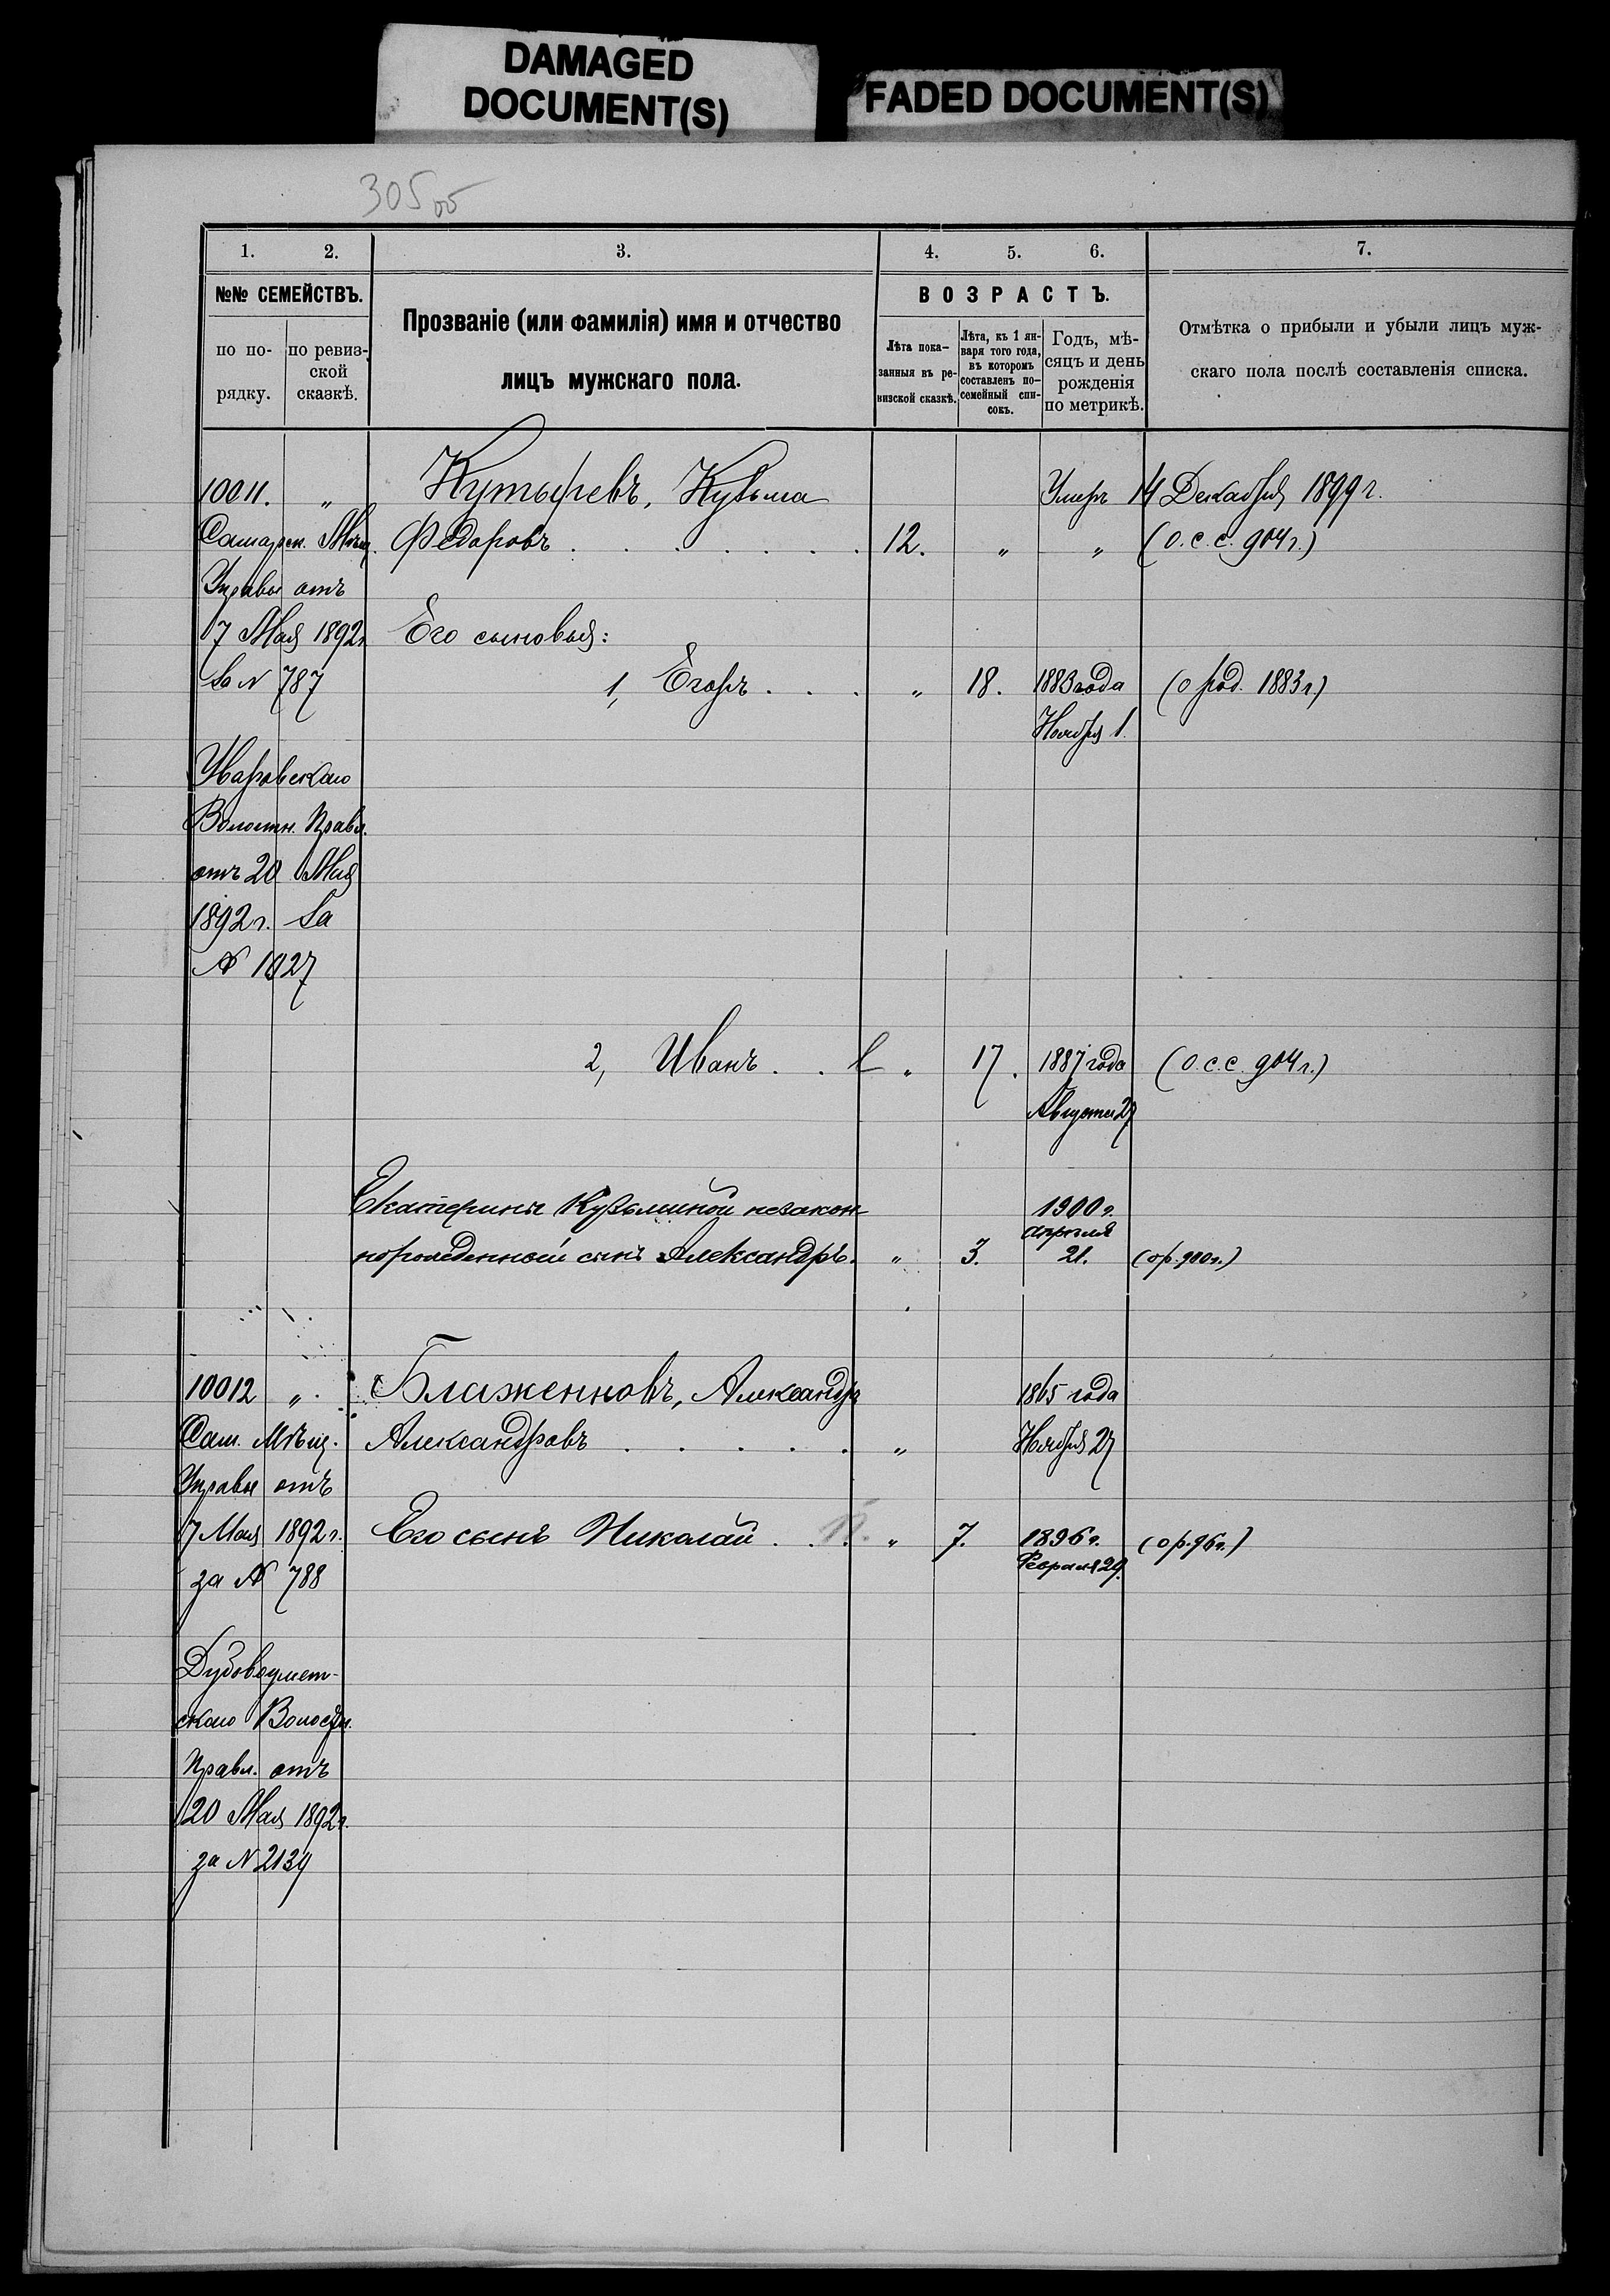 DAMAGED
DOCUMENT(S)
FADED DOCUMENT(S)
305 об
1. 2. 3. 4. 5. 6. 7.
№№ СЕМЕЙСТВЪ.
по по-
рядку.
по ревиз-
ской
сказкѣ.
Прозваніе (или фамилія) имя и отчество
лицъ мужскаго пола.
ВОЗРАСТЪ.
Лѣта пока-
занныя въ ре-
визской сказкѣ.
Лѣта, къ 1 ян-
варя того года,
въ которомъ
составленъ по-
семейный спи-
сокъ.
Годъ, мѣ-
сяцъ и день
рожденія
по метрикѣ.
Отмѣтка о прибыли и убыли лицъ муж-
скаго пола послѣ составленія списка.
10011. " Кутыревъ, Кузьма Умеръ 14 Декабря 1899 г.
Самарск. Мѣщ. Федоровъ . . . . . . . 12. " " (о.с.с. 904 г.)
Управы отъ
7 Мая 1892 г. Его сыновья:
За № 787 1, Егоръ . . . " 18. 1883 года (о род. 1883 г.)
Ноября 1.
Уваровскаго
Волостн. Правл.
отъ 20 Мая
1892 г. За
№ 1027
2, Иванъ . . " 17. 1887 года (о.с.с. 904 г.)
Августа 27
Екатерины Кузьминой незакон- 1900 г.
Апрѣля
норожденный сынъ Александръ. " 3. 21. (о р. 900 г.)
10012 " Блаженновъ, Александръ 1865 года
Сам. Мѣщ. Александровъ . . . . . " Ноября 27
Управы отъ
7 Мая 1892 г. Его сынъ Николай . . . " 7. 1896 г. (о р. 96 г.)
Февраля 29.
за № 788
Дубовоумет-
скаго Волостн.
Правл. отъ
20 Мая 1892 г.
за № 2139